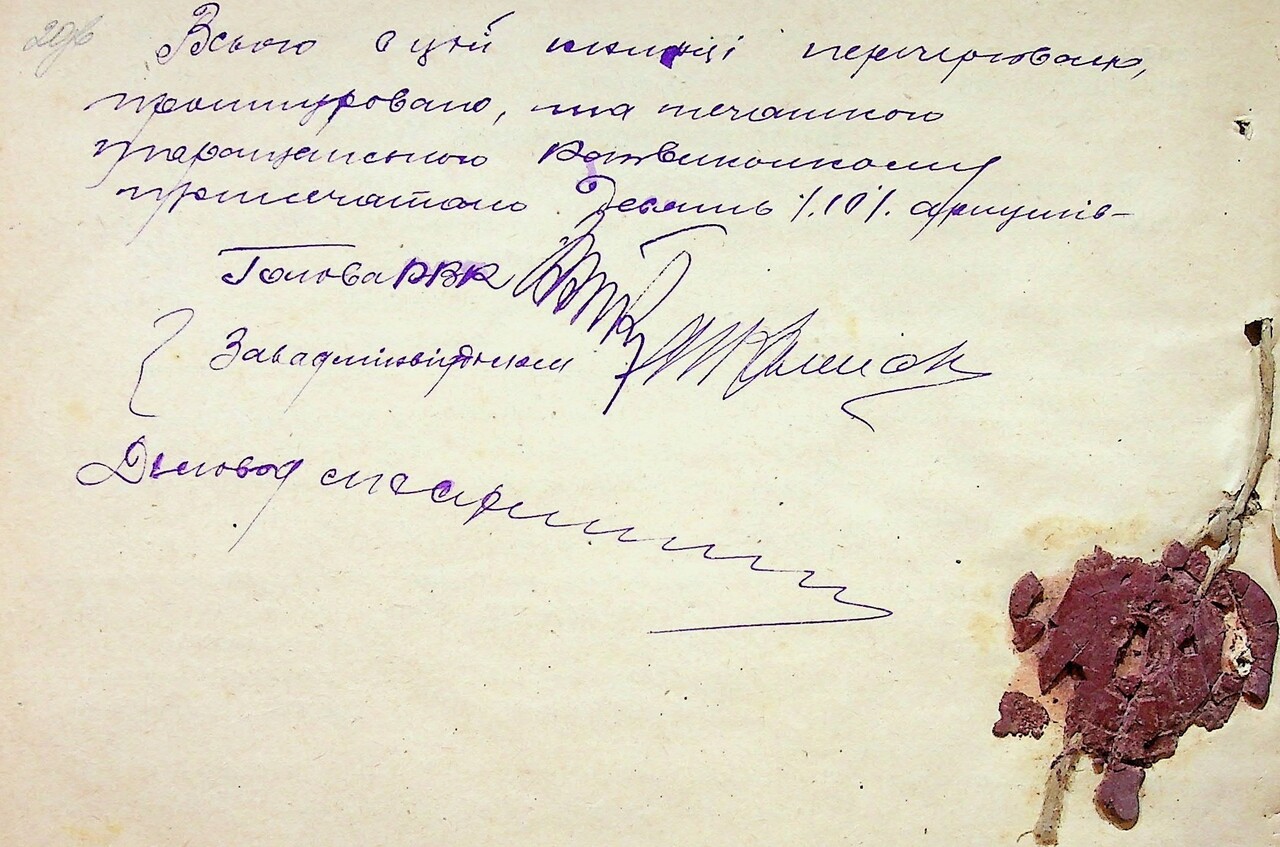 Всього в цій книжці перенумеровано,
прошнуровано, та печаткою
Таращанського Райвиконкому
припечатано Десять /.10/. аркушів-
Голова РВК
Завадмінвідділом
Діловод